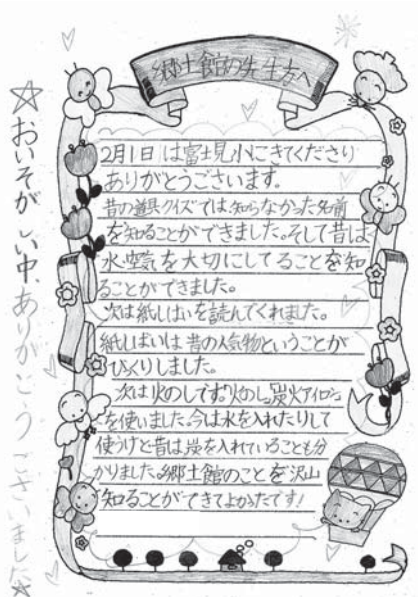 郷土館の先生方へ
2月1日は富士見小にきてくださり
ありがとうございます。
昔の道具クイズでは知らなかった名前
を知ることができました。そして昔は
水、空気を大切にしてることを知
ることができました。
次は紙しばいを読んでくれました。
紙しばいは昔の人気物ということが
びっくりしました。
次は火のしです。火のし、炭火アイロン
を使いました。今は水を入れたりして
使うけど昔は炭を入れていることも分
かりました。郷土館のことを沢山
知ることができてよかったです!
☆おいそがしい中、ありがとうございました☆